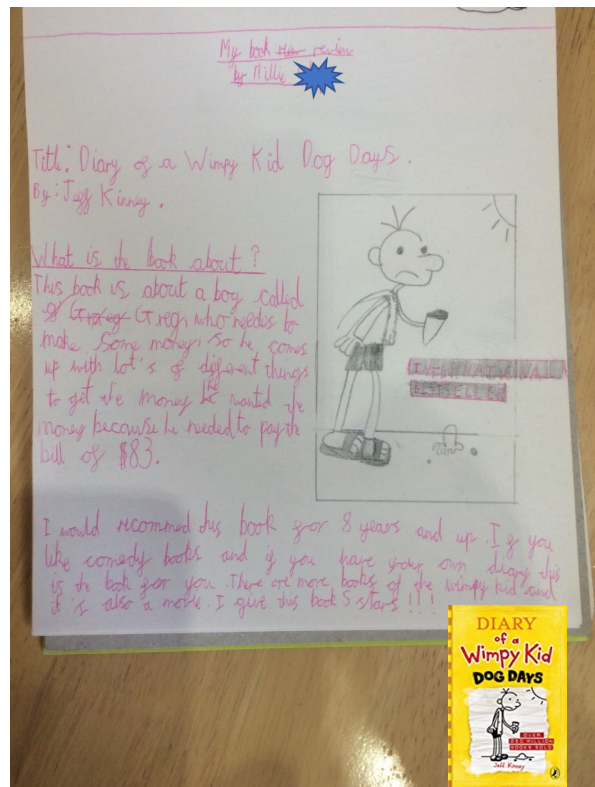 My book review
by Millie
Title: Diary of a Wimpy Kid Dog Days.
By: Jeff Kinney.
What is the book about?
This book is about a boy called
Greg who needes to
make some money so he comes
up with lot's of different things
to get the money he wanted the
money because he needed to pay the
bill of $83.
INTERNATIONAL
BESTSELLER
I would recommed this book for 8 years and up. If you
like comedy books and if you have your own diary this
is the book for you. There are more books of the wimpy kid and
it's also a movie. I give this book 5 stars!!!
DIARY
of a
Wimpy Kid
DOG DAYS
OVER
MILLION
BOOKS SOLD
Jeff Kinney